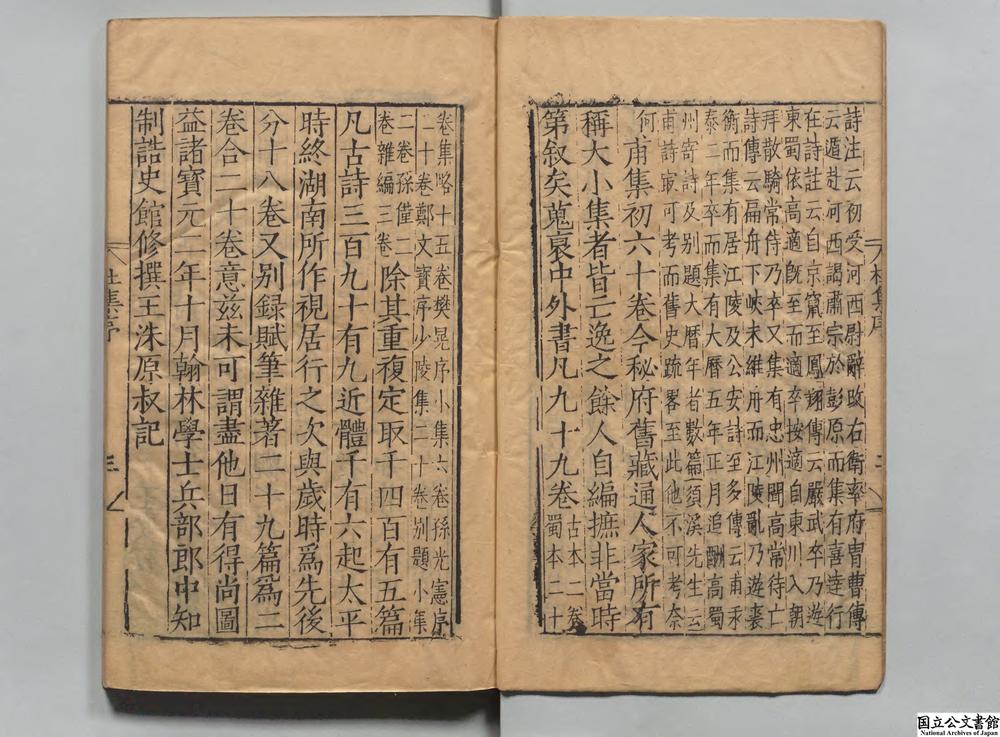 詩注云初受河西尉辭改右衛率府冑曹傳
云遁赴河西謁肅宗於彭原而集有喜達行
在詩註云自京竄至鳳翔傳云嚴武卒乃遊
東蜀依高適既至而適卒按適自東川入朝
拜散騎常侍乃卒又集有忠州聞高常侍亡
詩傳云扁舟下峽未維舟而江陵亂乃遊襄
衡而集有居江陵及公安詩至多傳云甫永
泰二年卒而集有大曆五年正月追酬高蜀
州寄詩及别題大曆年者數篇須溪先生云
甫詩㝡可考而舊史疏畧至此他不可考奈
何
甫集初六十卷今秘府舊藏通人家所有
稱大小集者皆亡逸之餘人自編摭非當時
第叙矣蒐裒中外書凡九十九卷古本二卷
蜀本二十
卷集略十五卷樊晃序小集六卷孫光憲序
二十卷鄭文寶序少陵集二十卷别題小集
二卷孫僅二
卷雜編三卷
除其重複定取千四百有五篇
凡古詩三百九十有九近體千有六起太平
時終湖南所作視居行之次與歲時爲先後
分十八卷又别録賦筆雜著二十九篇爲二
卷合二十卷意兹未可謂盡他日有得尚圖
益諸寶元二年十月翰林學士兵部郎中知
制誥史館修撰王洙原叔記
杜集序
三
国立公文書館
National Archives of Japan